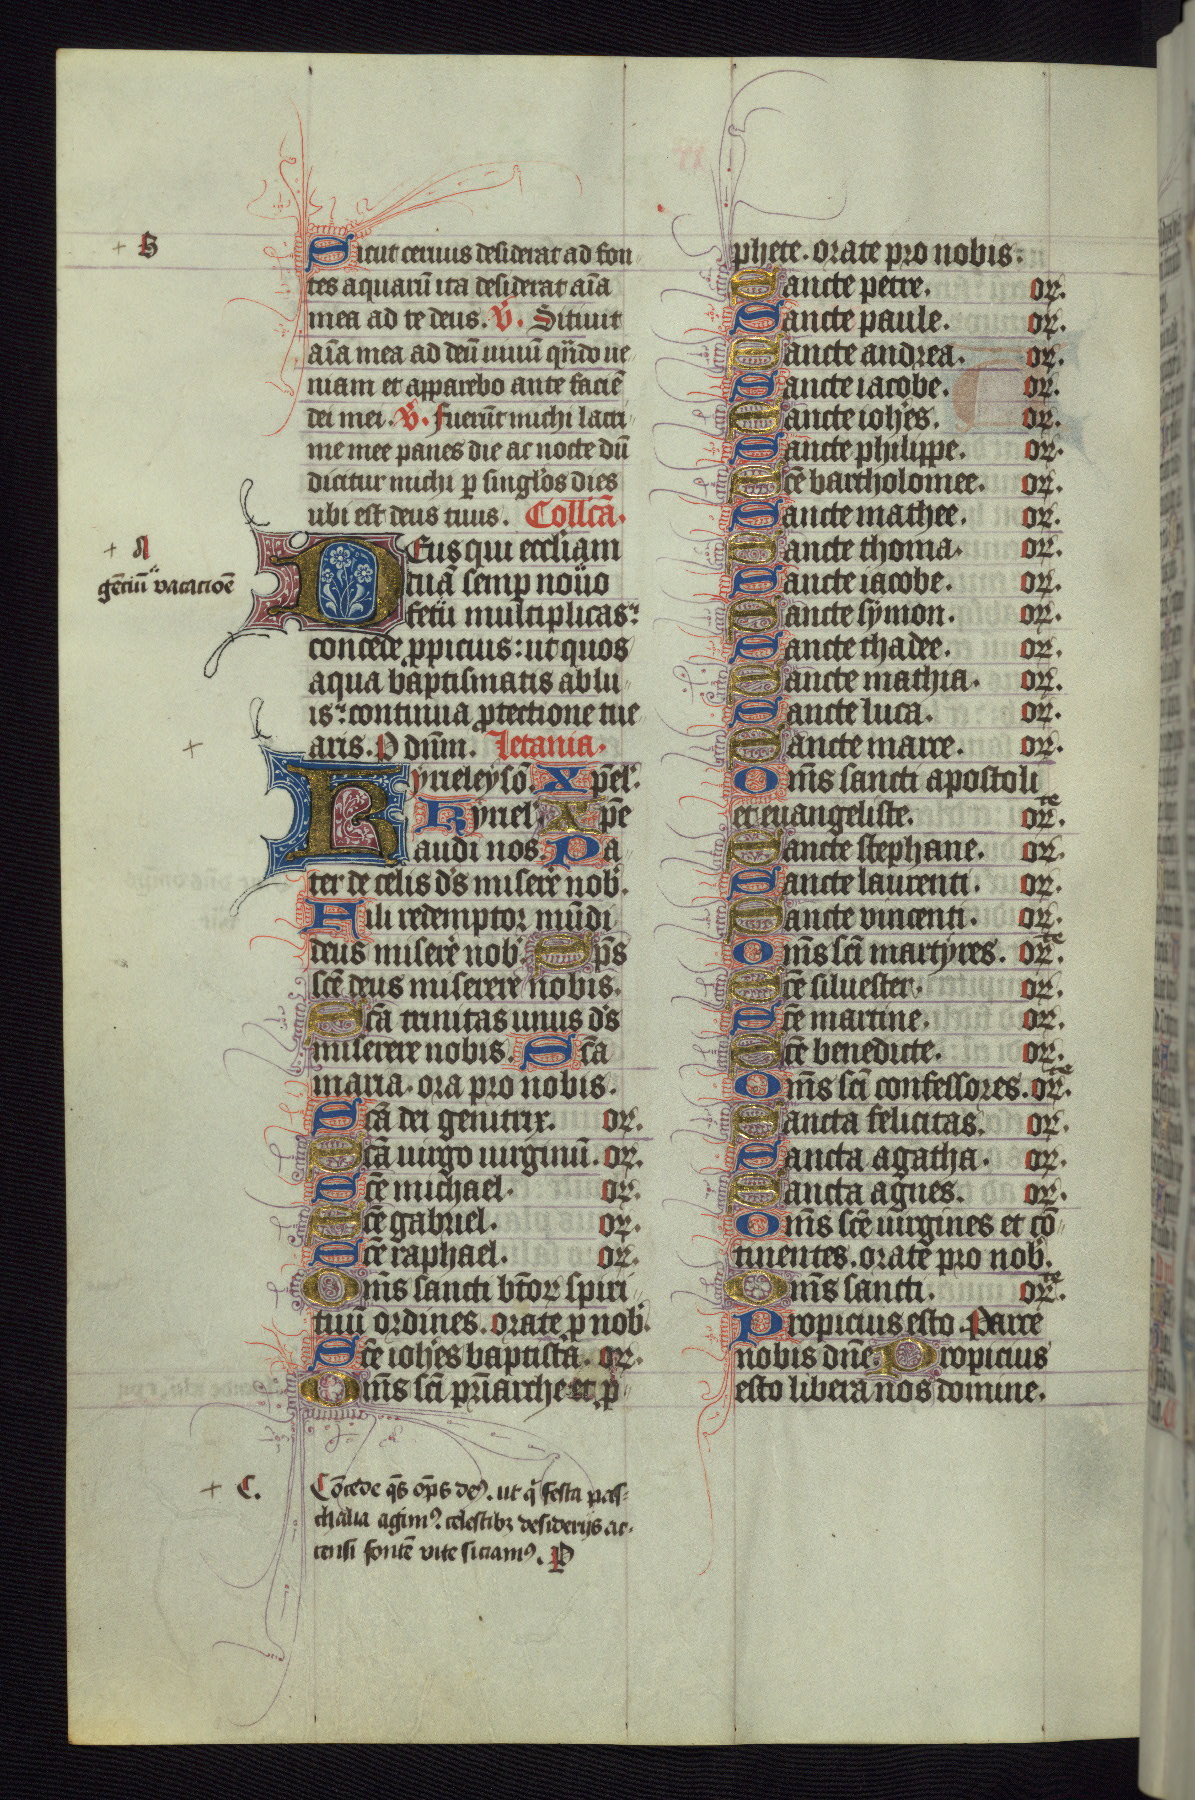 + B
Sicut ceruus desiderat ad fon
tes aquarū ita desiderat aīa
mea ad te deus. V. Sitiuit
aīa mea ad deū uiuū qn̄do ue
niam et apparebo ante faciē
dei mei. V. fuerūt michi lacri
me mee panes die ac nocte dū
dicitur michi p singlos dies
ubi est deus tuus. Collcā.
Deus qui eccliam
tuā semp nouo
fetu multiplicas:
concede ppicius: ut quos
aqua baptismatis ablu
is: continua ptectione tue
aris. P dnm. letania.
+ A
gētiū vacatioē
+
Kyrieleysō. Xpēl.
Kyriel. Xpē
audi nos. Pa
ter de celis ds misere nob.
Fili redemptor mūdi
deus misere nob. Sps
scē deus miserere nobis.
Scā trinitas unus ds
miserere nobis. Scā
maria. ora pro nobis.
Scā dei genitrix. or.
Scā uirgo uirginū. or.
Scē michael. or.
Scē gabriel. or.
Scē raphael. or.
Omīs sancti btor spiri
tuū ordines. orate p nob.
Scē iohes baptista. or.
Omīs scī priarche et p
+ C.
Cōcede qs ops de9. ut q festa pas
chalia agim9. celestibz desiderijs ac
censi fontē vite siciam9. P
phete. orate pro nobis.
Sancte petre. or.
Sancte paule. or.
Sancte andrea. or.
Sancte iacobe. or.
Sancte iohes. or.
Sancte philippe. or.
Scē bartholomee. or.
Sancte mathee. or.
Sancte thoma. or.
Sancte iacobe. or.
Sancte symon. or.
Sancte thadee. or.
Sancte mathia. or.
Sancte luca. or.
Sancte marce. or.
Omīs sancti apostoli
et euangeliste. orte
Sancte stephane. or.
Sancte laurenti. or.
Sancte vincenti. or.
Omīs scī martyres. orte
Scē siluester. or.
Scē martine. or.
Scē benedicte. or.
Omīs scī confessores. orte
Sancta felicitas. or.
Sancta agatha. or.
Sancta agnes. or.
Omīs scē uirgines et cō
tinentes. orate pro nob.
Omīs sancti. orte
Propicius esto. Parce
nobis dne. Propicius
esto libera nos domine.